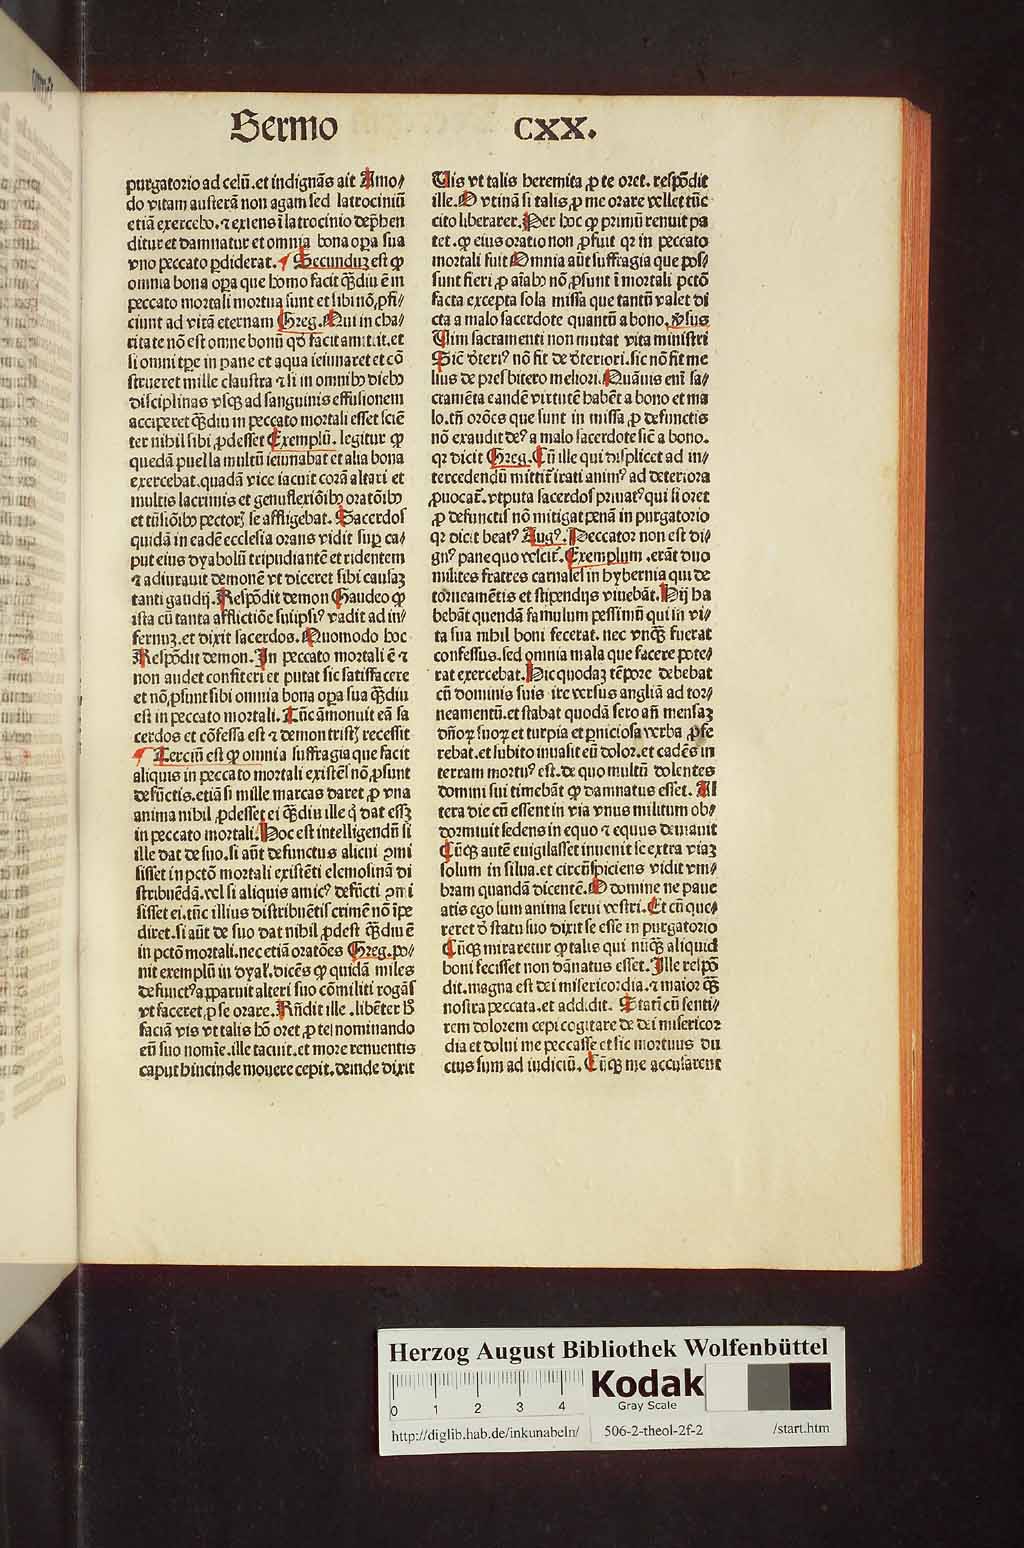 Sermo CXX.
purgatorio ad celū. et indignās ait Amo⸗
do vitam austerā non agam sed latrociniū
etiā exercebo. ⁊ exiens ī latrocinio dep̄hen
ditur et damnatur et omnia bona oꝑa sua
vno peccato ꝑdiderat. Secunduꝫ est ꝙ
omnia bona oꝑa que homo facit qͣ̄diu ē in
peccato mortali mortua sunt et sibi nō ꝓfi⸗
ciunt ad vitā eternam Greg. Qui in cha⸗
ritate nō est omne bonū qd̓ facit amittit. et
si omni tp̄e in pane et aqua ieiunaret et cō
strueret mille claustra ⁊ si in omnibꝫ diebꝫ
disciplinas vsqꝫ ad sanguinis effusionem
acciperet qͣ̄diu in peccato mortali esset sciē
ter nihil sibi ꝓdesset Exemplū. legitur ꝙ
quedā puella multū ieiunabat et alia bona
exercebat. quadā vice iacuit corā altari et
multis lacrimis et genuflexiōibꝫ oratōibꝫ
et tūsiōibꝫ pectorꝭ se affligebat. Sacerdos
quidā in eadē ecclesia orans vidit suꝑ ca⸗
put eius dyabolū tripudiantē et ridentem
⁊ adiurauit demonē vt diceret sibi causaꝫ
tanti gaudij. Respōdit demon Gaudeo ꝙ
ista cū tanta afflictiōe suiipsiꝰ vadit ad in⸗
fernuꝫ. et dixit sacerdos. Quomodo hoc
Respōdit demon. In peccato mortali ē ⁊
non audet confiteri et putat sic satisfacere
et nō ꝓsunt sibi omnia bona oꝑa sua qͣ̄diu
est in peccato mortali. Tūc āmonuit eā sa
cerdos et cōfessa est ⁊ demon tristꝭ recessit
Terciū est ꝙ omnia suffragia que facit
aliquis in peccato mortali existēs nō ꝓsunt
defūctis. etiā si mille marcas daret ꝓ vna
anima nihil ꝓdesset ei qͣ̄diu ille q̇ dat essꝫ
in peccato mortali. Hoc est intelligendū si
ille dat de suo. si aūt defunctus alicui ꝯmi
sisset in pctō mortali existēti elemosinā di
stribuēdā. vel si aliquis amicꝰ defūcti ꝯmi
sisset ei. tūc illius distribuētis crimē nō īpe
diret. si aūt de suo dat nihil ꝓdest qͣ̄diu ē
in pctō mortali. nec etiā oratōes Greg. po⸗
nit exemplū in dyal. dicēs ꝙ quidā miles
defunctꝰ apparuit alteri suo cōmiliti rogās
vt faceret ꝓ se orare. Rn̄dit ille. libēter hͦ
faciā vis vt talis hō oret ꝓ te ī nominando
eū suo nomīe. ille tacuit. et more renuentis
caput hincinde mouere cepit. deinde dixit
Vis vt talis heremita ꝓ te oret. respōdit
ille. O vtinā si talis ꝓ me orare vellet tūc
cito liberarer. Per hoc ꝙ primū renuit pa
tet. ꝙ eius oratio non ꝓfuit qr in peccato
mortali fuit Omnia aūt suffragia que pos⸗
sunt fieri ꝓ aīabꝫ nō ꝓsunt ī mortali pctō
facta excepta sola missa que tantū valet di
cta a malo sacerdote quantū a bono. ꝟsus
Vim sacramenti non mutat vita ministri
Sic̄ d̓teriꝰ nō fit de d̓teriori. sic nō fit me
lius de presbitero meliori. Quāuis enī sa⸗
cramēta eandē virtutē habēt a bono et ma
lo. tn̄ orōes que sunt in missa ꝓ defunctis
nō exaudit deꝰ a malo sacerdote sic̄ a bono.
qr dicit Greg. Cū ille qui displicet ad in⸗
tercedendū mittit̄ irati animꝰ ad deteriora
ꝓuocat̄. vtputa sacerdos priuatꝰ qui si oret
ꝓ defunctis nō mitigat penā in purgatorio
qr dicit beatꝰ Augꝰ. Peccator non est di⸗
gnꝰ pane quo vescit̄. Exemplum. erāt duo
milites fratres carnales in hybernia qui de
tornamētis et stipendijs viuebāt. Hij ha
bebāt quendā famulum pessimū qui in vi⸗
ta sua nihil boni fecerat. nec vnqͣ̄ fuerat
confessus. sed omnia mala que facere pote⸗
rat exercebat. Hic quodaꝫ tēpore debebat
cū dominis suis ire versus angliā ad tor⸗
neamentū. et stabat quodā sero an̄ mensaꝫ
dn̄oꝝ suoꝝ et turpia et ꝑniciosa verba ꝓfe
rebat. et subito inuasit eū dolor. et cadēs in
terram mortuꝰ est. de quo multū dolentes
domini sui timebāt ꝙ damnatus esset. Al
tera die cū essent in via vnus militum ob⸗
dormiuit sedens in equo ⁊ equus deuiauit
Cūqꝫ autē euigilasset inuenit se extra viaꝫ
solum in silua. et circūspiciens vidit vm⸗
bram quandā dicentē. O domine ne paue
atis ego sum anima serui vestri. Et cū que⸗
reret d̓ statu suo dixit se esse in purgatorio
Cūqꝫ miraretur ꝙ talis qui nūqͣ̄ aliquid
boni fecisset non dānatus esset. Ille respō
dit. magna est dei misericordia. ⁊ maior qͣ̄
nostra peccata. et addidit. Statī cū senti⸗
rem dolorem cepi cogitare de dei misericor
dia et dolui me peccasse et sic mortuus du
ctus sum ad iudiciū. Cūqꝫ me accusarent
Herzog August Bibliothek Wolfenbüttel
Kodak
Gray Scale
0 1 2 3 4
http://diglib.hab.de/inkunabeln/ 506-2-theol-2f-2 /start.htm